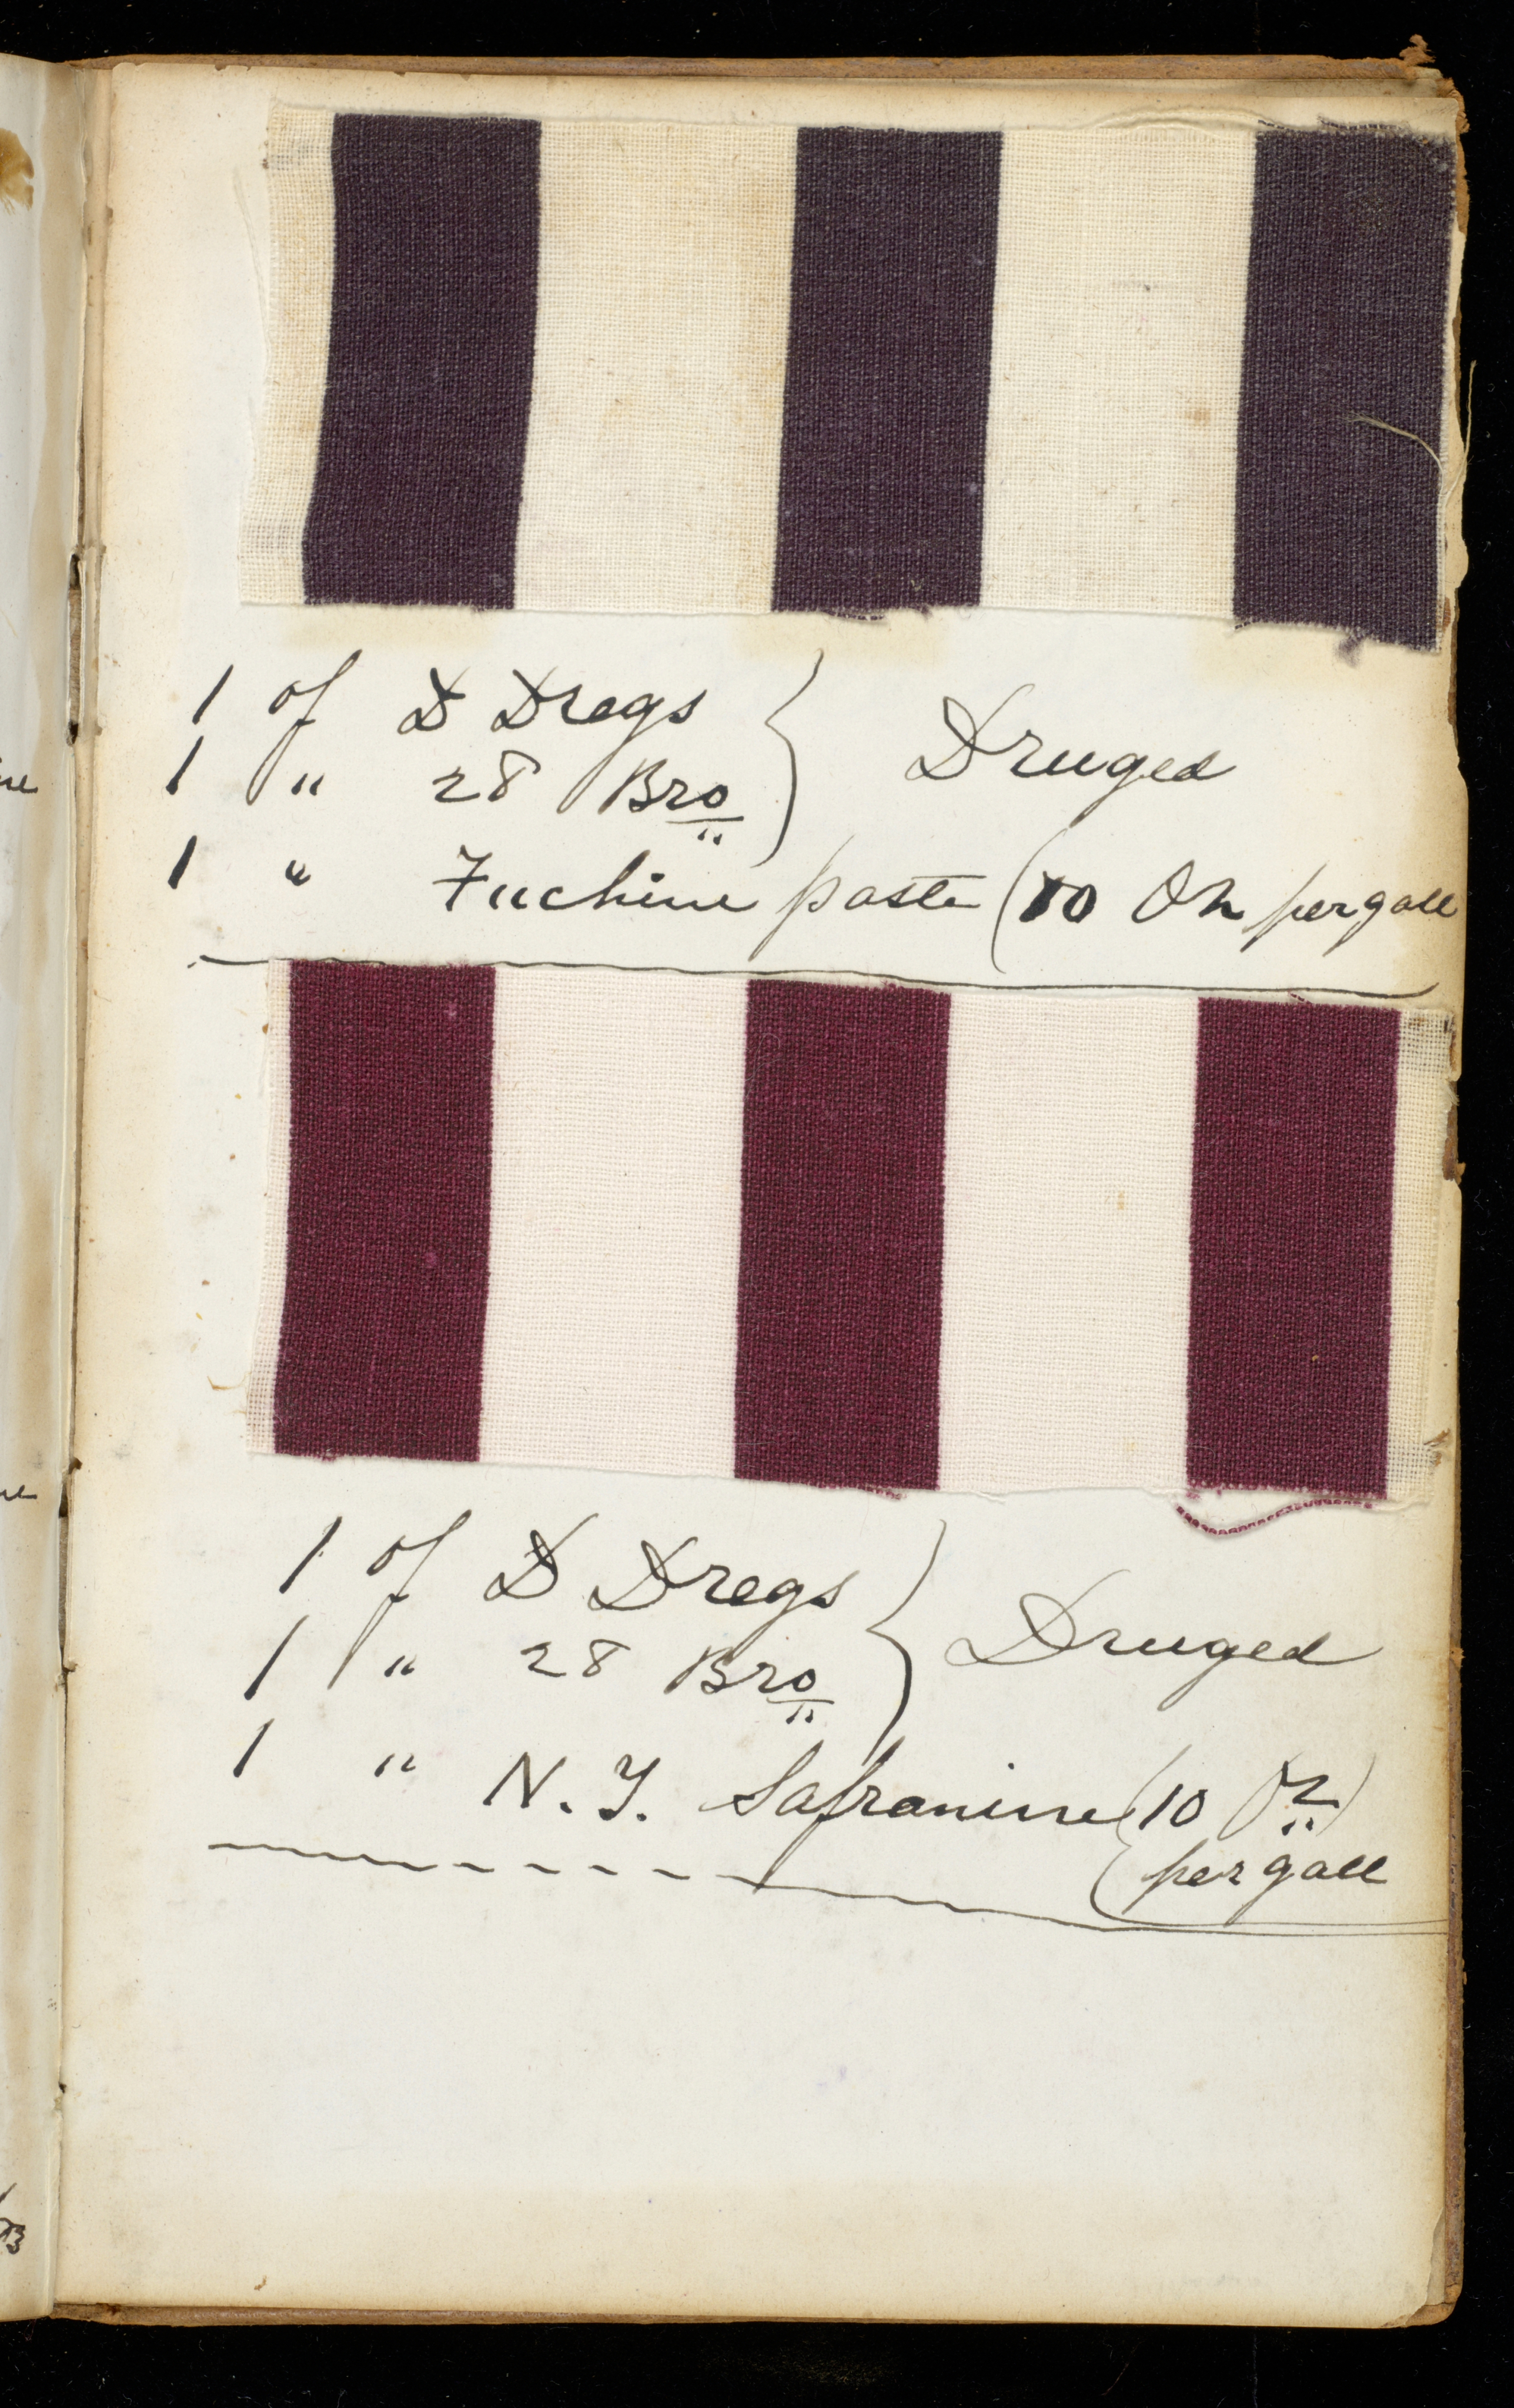 1 of D Dregs
1 " 28 Bro } Druged
1 " Fuchine paste (10 Oz per gall
1 of D Dregs
1 " 28 Bro } Druged
1 " N. Y. Safranine (10 Oz)
(per gall